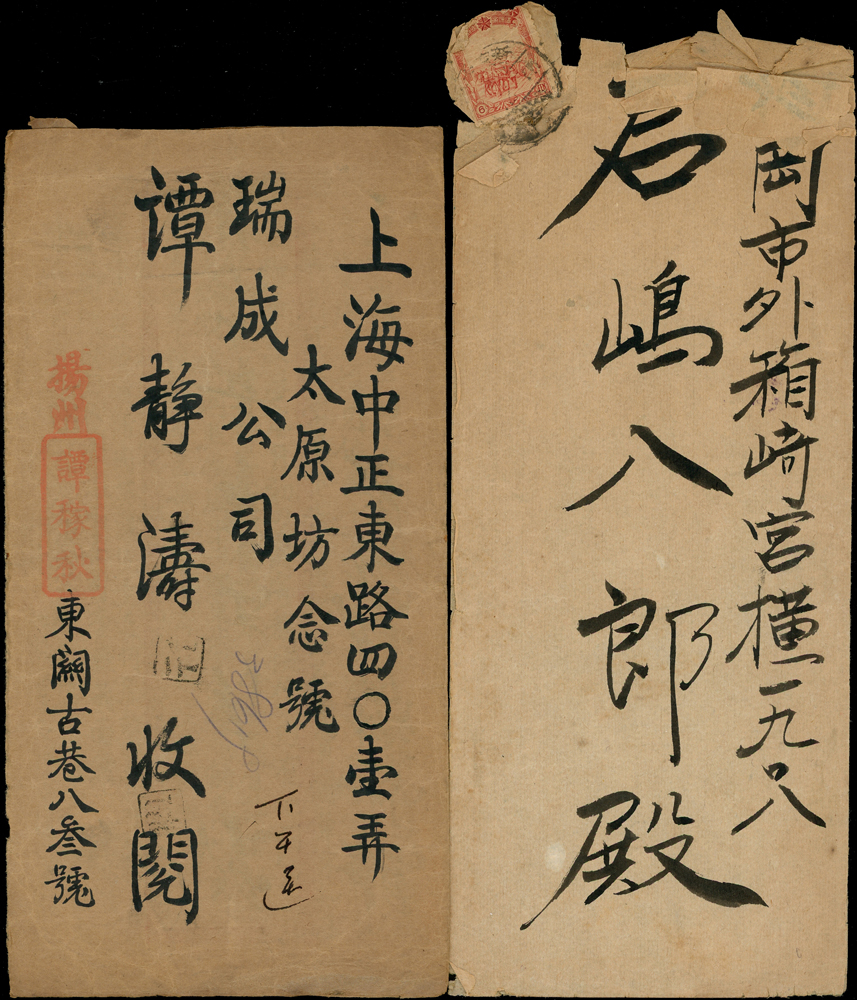 上海中正東路四〇壹弄
太原坊念號
瑞成公司
譚靜濤收閱
揚州
譚稼秋
東關古巷八叁號
岡市外箱崎宮横一九八
石嶋八郎殿